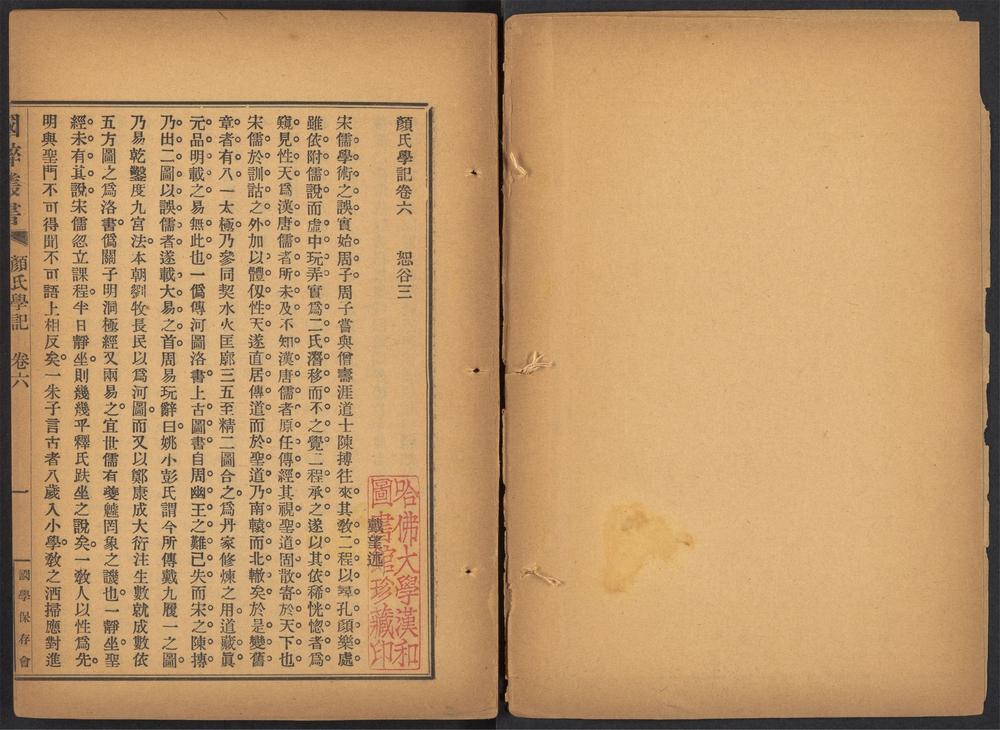 顏氏學記卷六　恕谷三
戴望述
宋儒學術之誤實始周子周子嘗與僧壽涯道士陳摶往來其敎二程以尋孔顏樂處
雖依附儒說而虛中玩弄實爲二氏潛移而不之覺二程承之遂以其依稀恍惚者爲
窺見性天爲漢唐儒者所未及不知漢唐儒者原任傳經其視聖道固散寄於天下也
宋儒於訓詁之外加以體仅性天遂直居傳道而於聖道乃南轅而北轍矣於是變舊
章者有八一太極乃參同契水火匡廓三五至精二圖合之爲丹家修煉之用道藏眞
元品明載之易無此也一僞傳河圖洛書上古圖書自周幽王之難已失而宋之陳摶
乃出二圖以誤儒者遂載大易之首周易玩辭曰姚小彭氏謂今所傳戴九履一之圖
乃易乾鑿度九宮法本朝劉牧長民以爲河圖而又以鄭康成大衍注生數就成數依
五方圖之爲洛書僞關子明洞極經又兩易之宜世儒有夔魖罔象之譏也一靜坐聖
經未有其說宋儒忽立課程半日靜坐則幾幾乎釋氏趺坐之說矣一敎人以性爲先
明與聖門不可得聞不可語上相反矣一朱子言古者八歲入小學敎之洒掃應對進
國粹叢書　顏氏學記　卷六　一　國學保存會
哈佛大學漢和
圖書館珍藏印